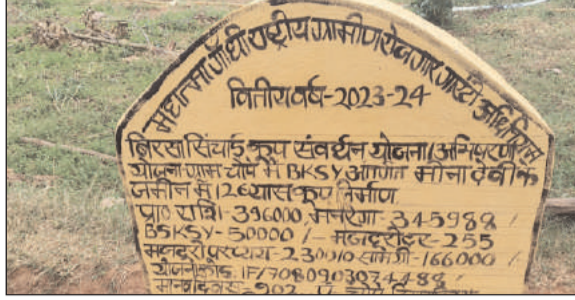 महात्मा गाँधी राष्ट्रीय ग्रामीण रोजगार गारंटी अधिनियम
वितीय वर्ष-2023-24
बिरसा सिंचाई कूप संवर्धन योजना/अभिसरण
योजना ग्राम चोपे में BKSY अंतर्गत मीना देवी के
जमीन में 12 व्यास कूप निर्माण
प्रा० राशि-396000, मनरेगा-345988/
BSKSY-50000/- मजदूरी दर-255
मजदूरी पर व्यय-230010 सामग्री-166000/
योजना कोड, IF/7080903074488/
मानव दिवस-902